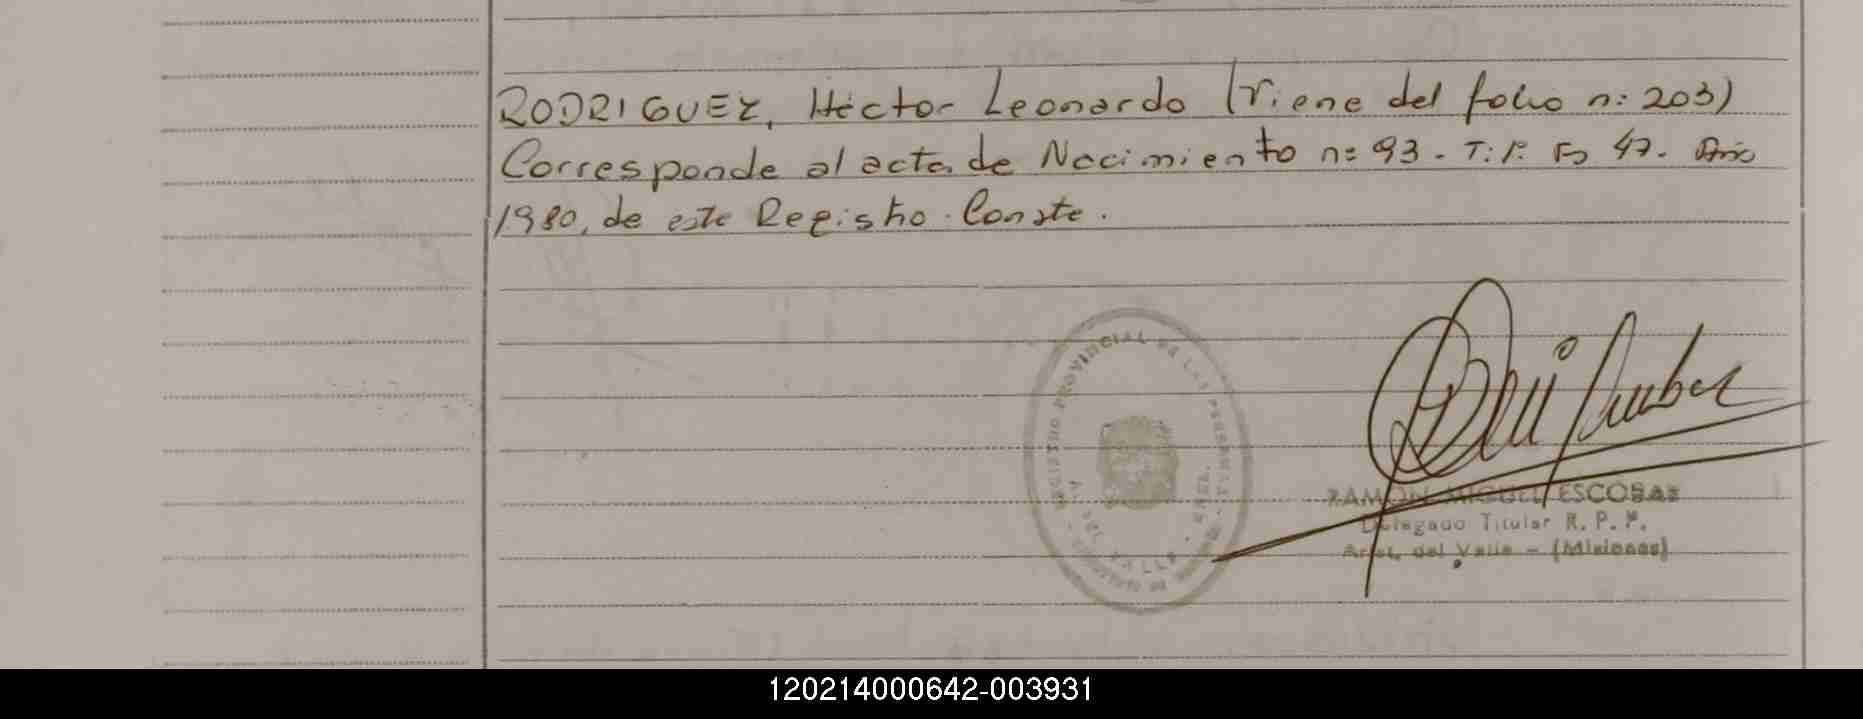 RODRIGUEZ, Héctor Leonardo (Viene del folio n: 203)
Corresponde al acta de Nacimiento nº 93. T: 1º Fº 47. Año
1980, de este Registro. Conste.
REGISTRO PROVINCIAL DE LAS PERSONAS
A. DEL VALLE
RAMON MIGUEL ESCOBAR
Delegado Titular R. P. P.
Arist. del Valle - (Misiones)
120214000642-003931